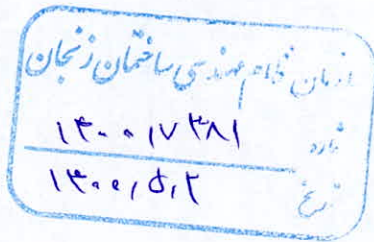 سازمان نظام مهندسی ساختمان زنجان
شماره ۱۴۰۰/۷۳۸۱
تاریخ ۱۴۰۰/۵/۲